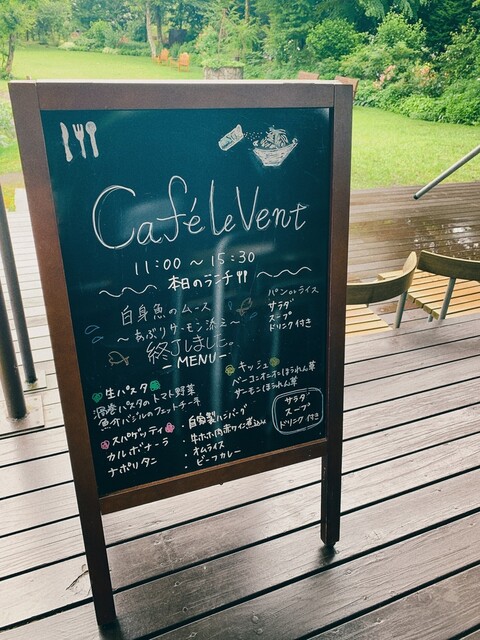 Café le Vent
11:00 〜 15:30
本日のランチ
白身魚のムース
〜あぶりサーモン添え〜
終了しました。
パンorライス
サラダ
スープ
ドリンク付き
-MENU-
生パスタ
トマト野菜
魚介バジルのフェットチーネ
スパゲッティ
カルボナーラ
ナポリタン
キッシュ
ベーコンオニオンほうれん草
サーモンほうれん草
・自家製ハンバーグ
・牛ホホ肉赤ワイン煮込み
・オムライス
・ビーフカレー
サラダ
スープ
ドリンク付き